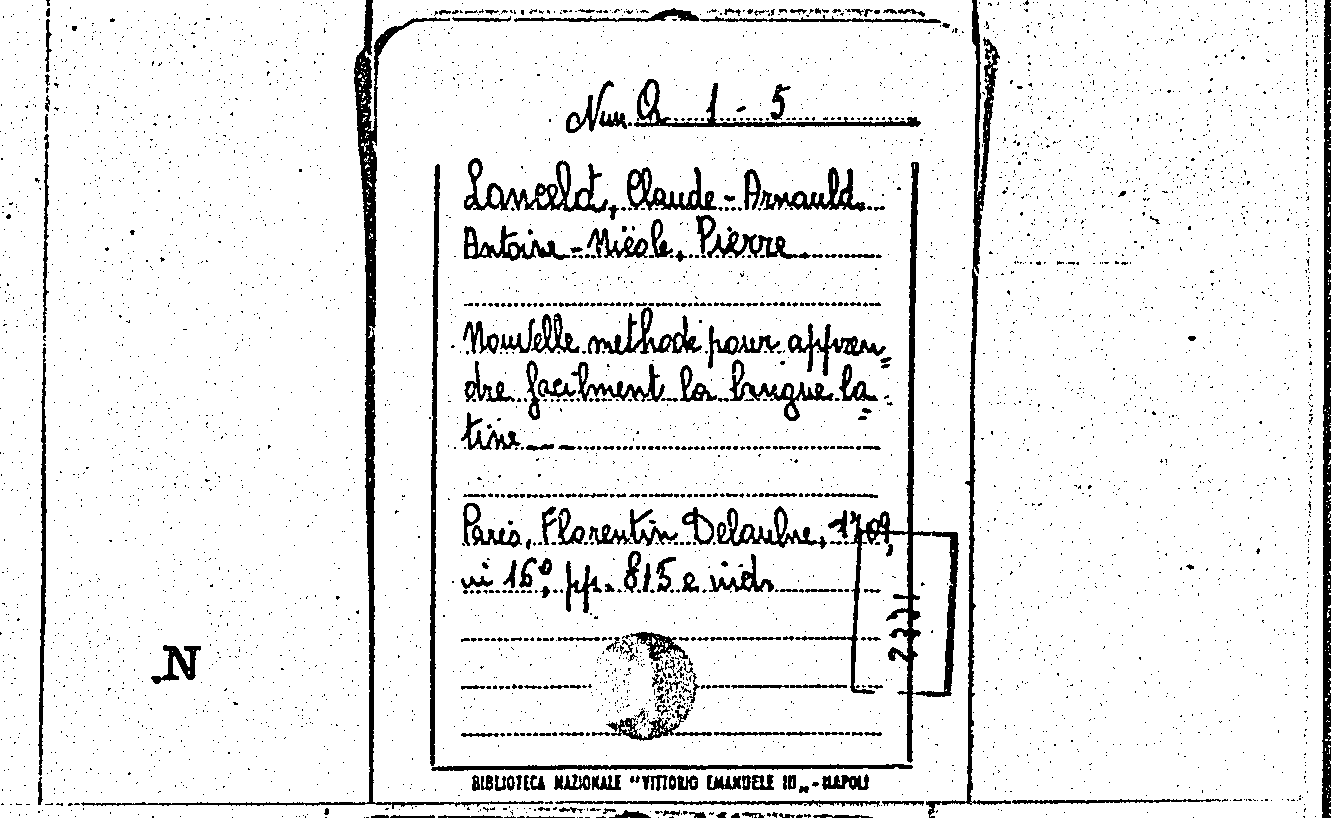 Nun Q 1 - 5
Lancelot, Claude - Arnauld
Antoine - Nicole, Pierre
Nouvelle methode pour appren=
dre facilment la langue la=
tine
Paris, Florentin Delaulne, 1709,
in 16°, pp. 815 e
N
BIBLIOTECA NAZIONALE "VITTORIO EMANUELE III„ - NAPOLI